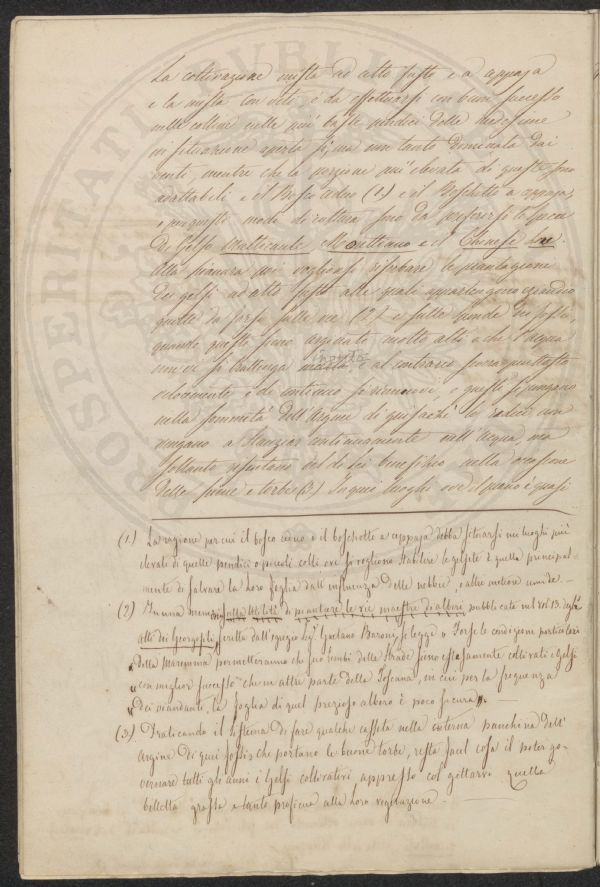 La coltivazione mista ad alto fusto e a ceppaja
e la mista con viti, è da effettuarsi con buon successo
nelle colline nelle più basse pendici delle medesime
in situazione aperta sì, ma non tanto dominata dai
venti, mentre che la porzione più elevata di queste sono
adattabili e il Bosco ceduo (1.) e il Boschetto a ceppaja,
e per questo modo di cultura sono da preferirsi la specie
di Gelso Multicaule, Morettiano e il Chinese
Alla pianura poi voglionsi riserbare le piantagioni
dei gelsi ad alto fusto alle quali appartengono eziandio
quelle da farsi sulle vie (2) e sulle sponde dei fossi,
quando queste sieno arginate molto alte e che l'acqua
non vi si trattenga molto, e al contrario scorra piuttosto
velocemente e di continuo si rinnuovi, e questi si pongano
nella sommità dell'Argine di guisachè le radici non
vengano a stanziar continuamente nell'Acqua ma
soltanto risentano del di lei benefizio nella occasione
delle piene e torbe (3.) In quei luoghi ove il piano è quasi
(1.) La ragione per cui il bosco ceduo e il boschetto a ceppaja debba situarsi nei luoghi più
elevati di quelle pendici o piccoli colli ove si vogliono stabilire le gelsete è quella principal-
mente di salvare la loro foglia dall'influenza delle nebbie, e altre meteore umide.
(2) In una memoria sull'utilità di piantare le vie maestre di alberi pubblicata nel Vol. 13. degli
atti dei Georgofili, scritta dall'egregio Sigr. Gaetano Baroni si legge " Forse le condizioni particolari
" della Maremma permetteranno che sui lembi delle strade sieno estesamente coltivati i Gelsi
" con miglior successo che in altre parti della Toscana, in cui per la frequenza
" dei viandanti, la foglia di quel prezioso albero è poco sicura ".
(3.) Praticando il sistema di fare qualche cassetta nella interna panchina dell'
argine di quei fossi che portano le buone torbe, resta facil cosa il poter go-
vernare tutti gli anni i Gelsi coltivativi appresso col gettarvi quella
belletta grassa e tanto proficua alla loro vegetazione.
PROSPERITATI PVBLI